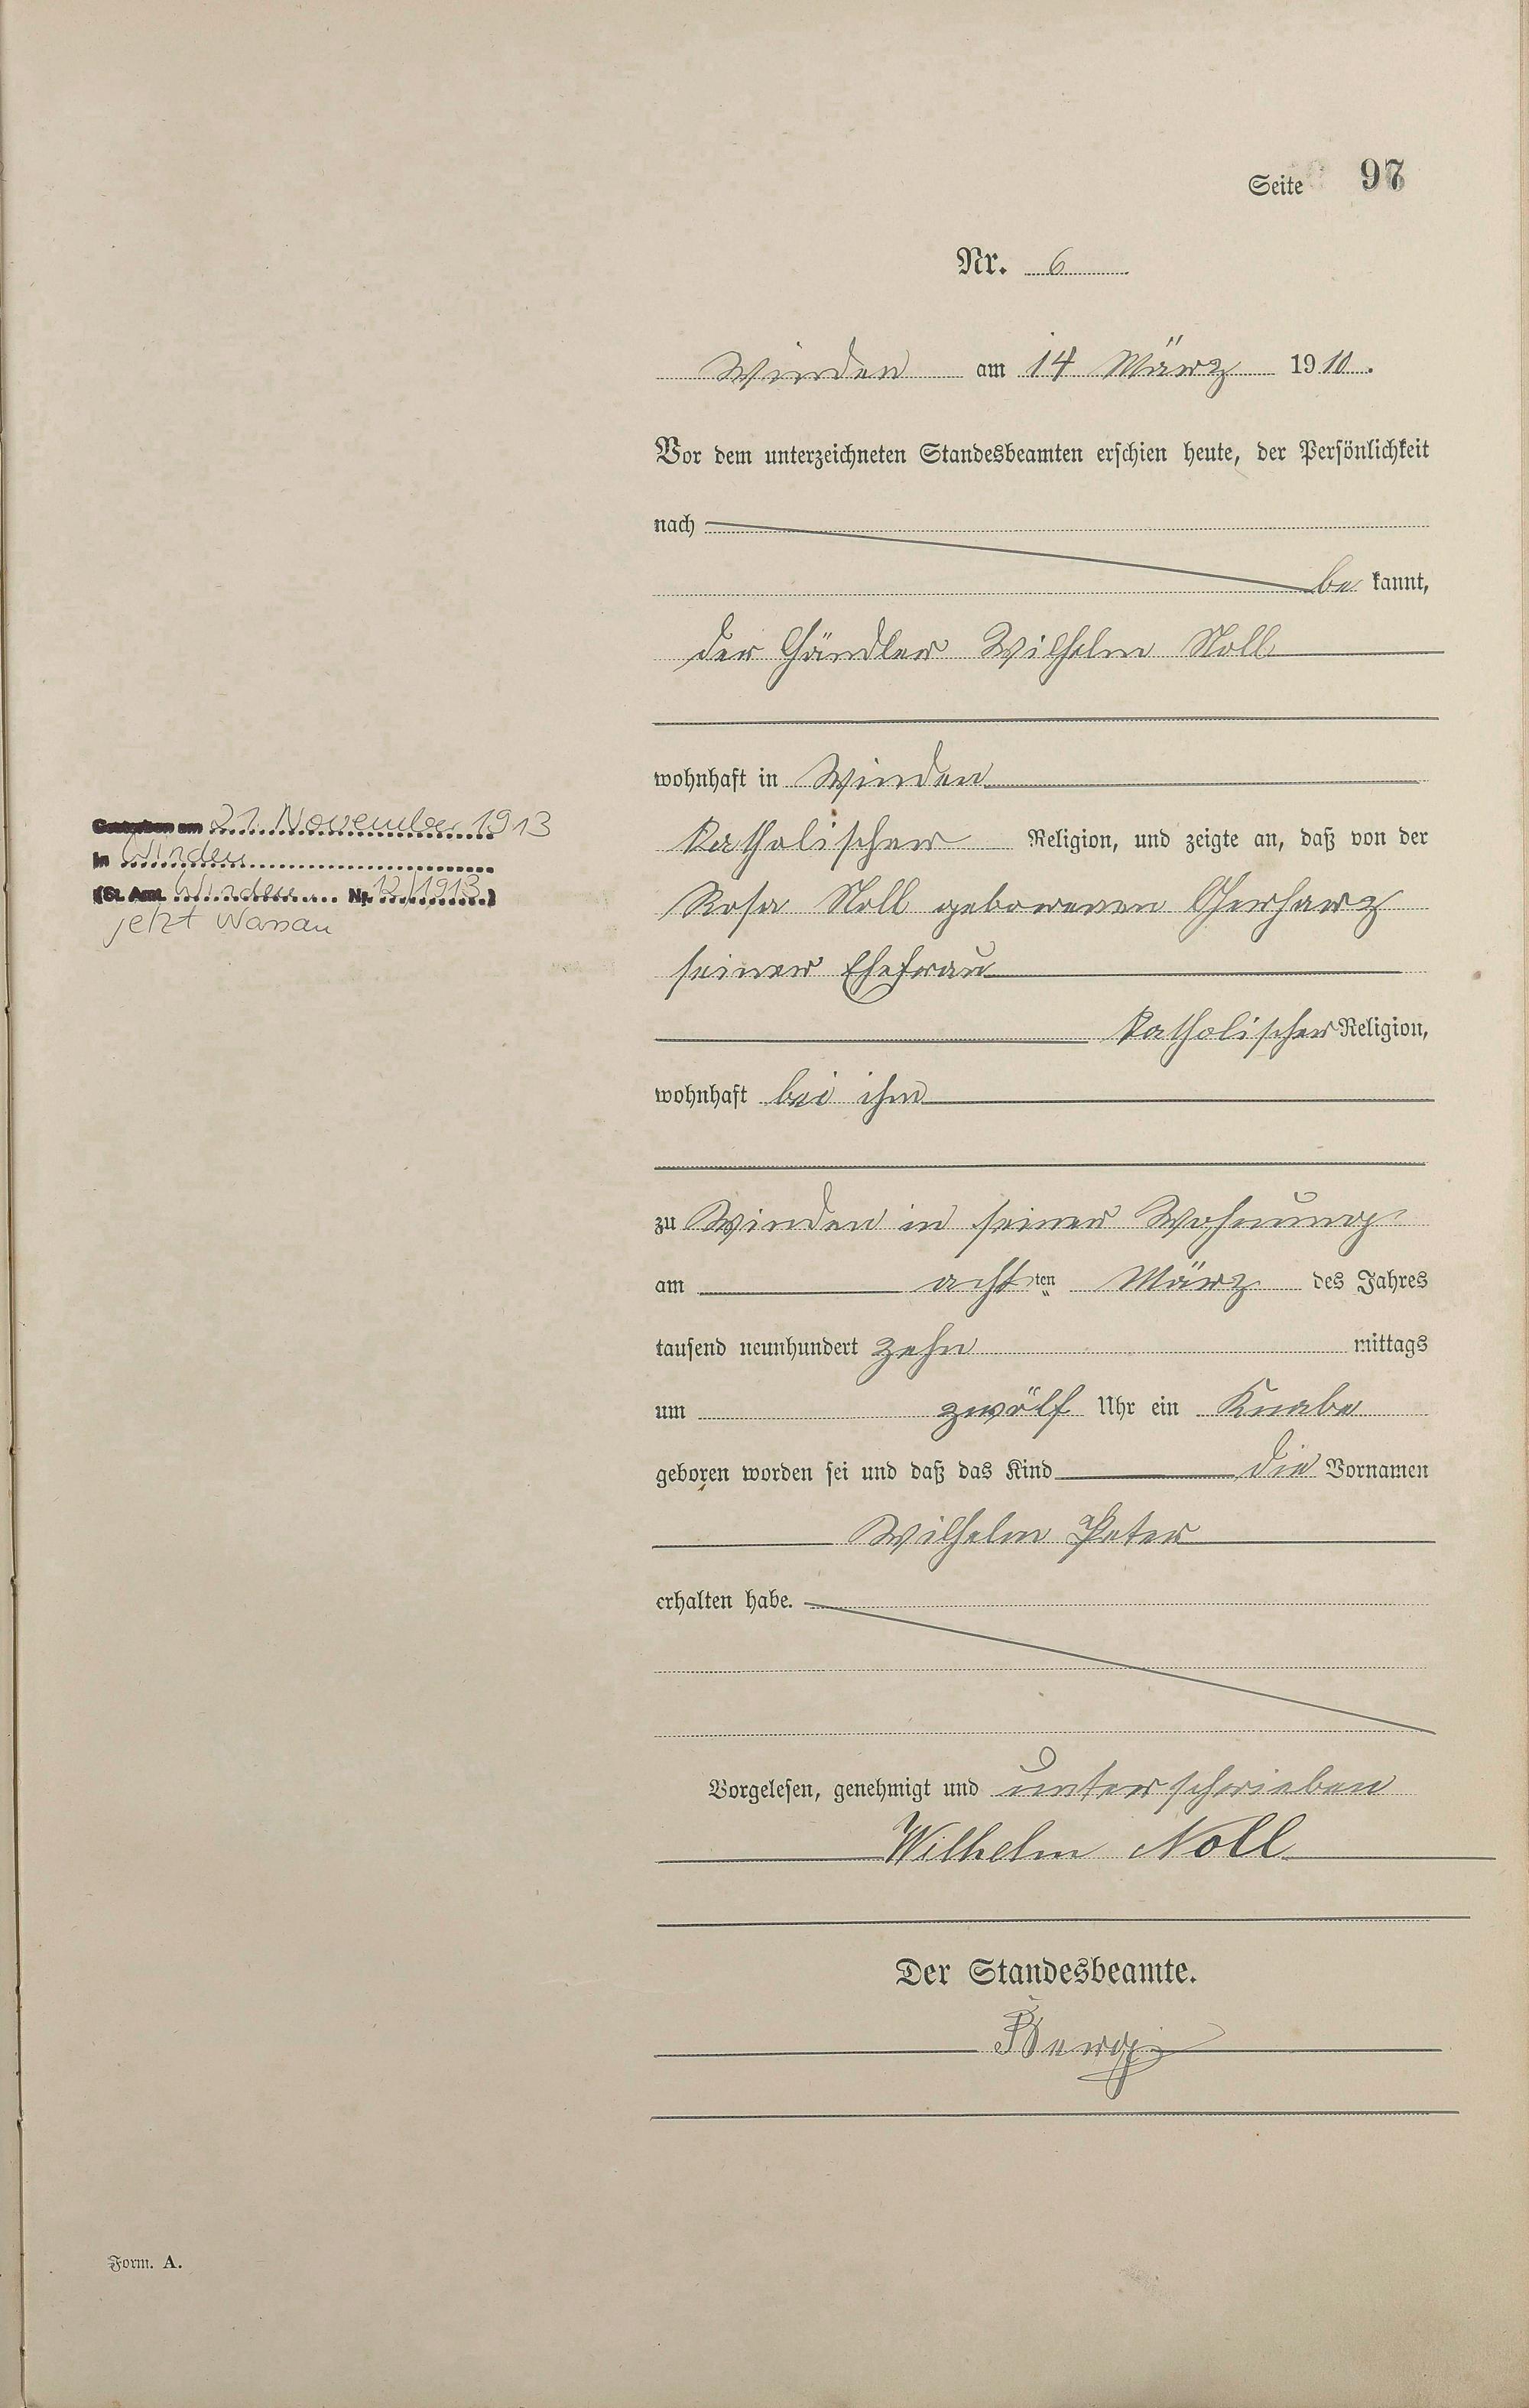 Seite 97
Nr. 6
Winden am 14 März 1910.
Vor dem unterzeichneten Standesbeamten erschien heute, der Persönlichkeit
nach
be kannt,
der Händler Wilhelm Noll
wohnhaft in Winden
Gestorben am 21. November 1913
in Winden
(St. Amt. Winden Nr. 12/1913)
jetzt Nassau
katholischer Religion, und zeigte an, daß von der
Rosa Noll geborenen Gerharz
seiner Ehefrau
katholischer Religion,
wohnhaft bei ihm
zu Winden in seiner Wohnung
am achtten März des Jahres
tausend neunhundert zehn mittags
um zwölf Uhr ein Knabe
geboren worden sei und daß das Kind die Vornamen
Wilhelm Peter
erhalten habe.
Vorgelesen, genehmigt und unterschrieben
Wilhelm Noll
Der Standesbeamte.
Berg
Form. A.